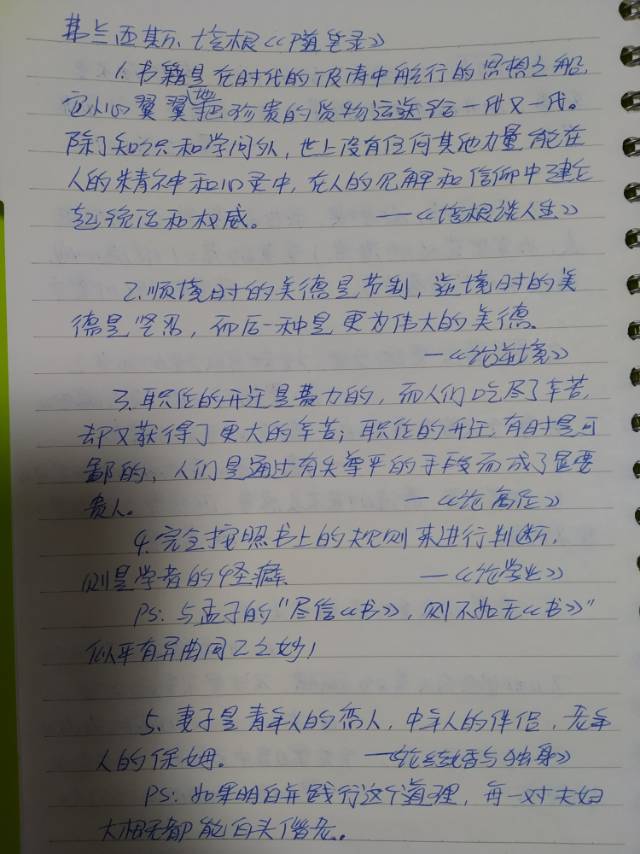 弗兰西斯·培根《随笔录》
1. 书籍是在时代的波涛中航行的思想之船,
它小心翼翼地把珍贵的货物运送给一代又一代。
除了知识和学问外,世上没有任何其他力量能在
人的精神和心灵中,在人的见解和信仰中建立
起统治和权威。 ——《培根谈人生》
2. 顺境时的美德是节制,逆境时的美
德是坚忍,而后一种是更为伟大的美德。
—《论逆境》
3. 职位的升迁是费力的,而人们吃尽了辛苦,
却又获得了更大的辛苦;职位的升迁,有时是可
鄙的,人们是通过有失尊严的手段而成了显要
贵人。 —《论高位》
4. 完全按照书上的规则来进行判断,
则是学者的怪癖 —《论学业》
PS: 与孟子的“尽信《书》,则不如无《书》”
似乎有异曲同工之妙!
5. 妻子是青年人的恋人,中年人的伴侣,老年
人的保姆。 —《论结婚与独身》
PS: 如果明白并践行这个道理,每一对夫妇
大概都能白头偕老。